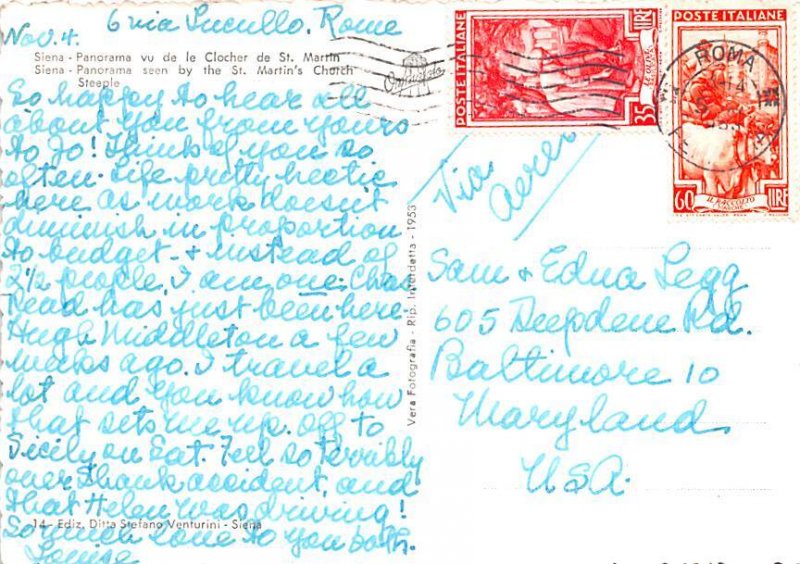 6 via Lucullo. Rome
Nov. 4.
Siena - Panorama vu de le Clocher de St. Martin
Siena - Panorama seen by the St. Martin's Church
Steeple
So happy to hear all
about you from yours
to Jo! Think of you so
often. Life pretty hectic
here as work doesn't
diminish in proportion
to budget - & instead of
2 1/2 people, I am one. Chas
Read has just been here.
Hugh Middleton a few
weeks ago. I travel a
lot and you know how
that sets me up. Off to
Sicily on Sat. Feel so terribly
over Shank accident, and
that Helen was driving!
So much love to you both.
Louise
14 - Ediz. Ditta Stefano Venturini - Siena
Vera Fotografia - Rip. Interdetta - 1953
POSTE ITALIANE
35 LIRE
POSTE ITALIANE
60 LIRE
IL RACCOLTO
ROMA
Via
Aerea
Sam & Edna Legg
605 Deepdene Rd.
Baltimore 10
Maryland
USA.